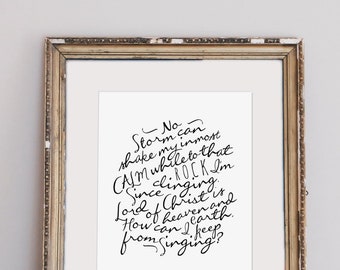 No
Storm can
shake my inmost
CALM while to that
ROCK I'm
clinging.
Since
Lord of Christ is
heaven and
How can I earth.
from keep
singing?